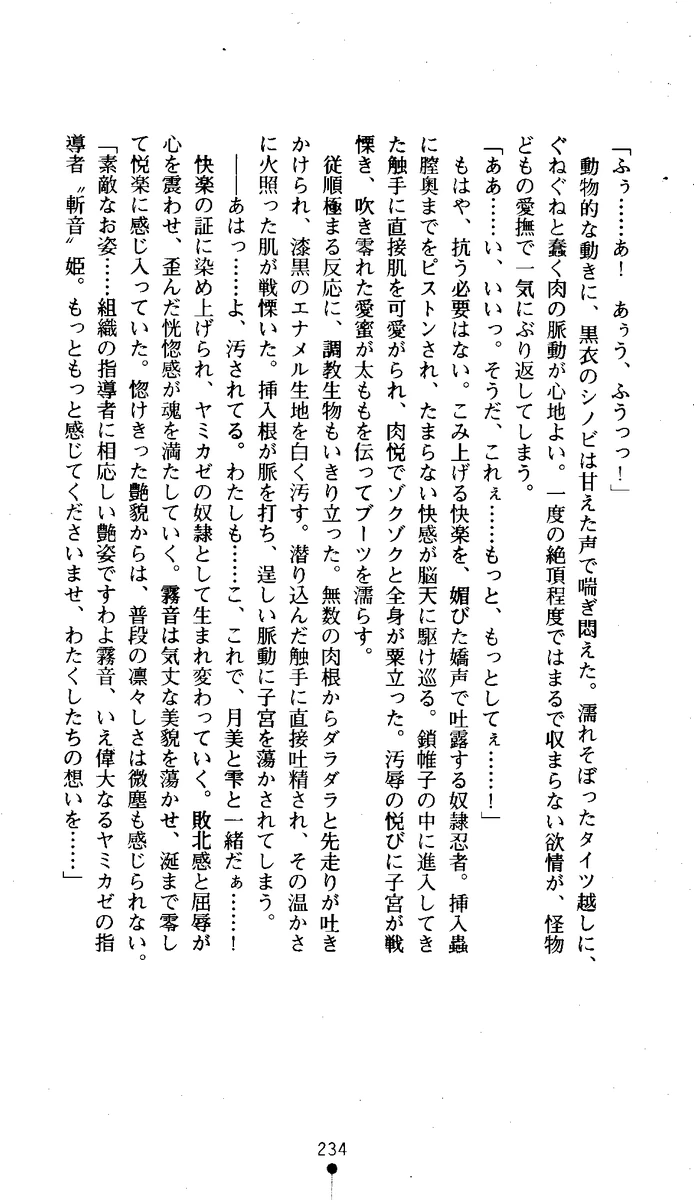 「ふぅ……ぁ！　あぅう、ふうっっ！」
　動物的な動きに、黒衣のシノビは甘えた声で喘ぎ悶えた。濡れそぼったタイツ越しに、
ぐねぐねと蠢く肉の脈動が心地よい。一度の絶頂程度ではまるで収まらない欲情が、怪物
どもの愛撫で一気にぶり返してしまう。
「ああ……い、いいっ。そうだ、これぇ……もっと、もっとしてぇ……！」
　もはや、抗う必要はない。こみ上げる快楽を、媚びた嬌声で吐露する奴隷忍者。挿入蟲
に膣奥までをピストンされ、たまらない快感が脳天に駆け巡る。鎖帷子の中に進入してき
た触手に直接肌を可愛がられ、肉悦でゾクゾクと全身が粟立った。汚辱の悦びに子宮が戦
慄き、吹き零れた愛蜜が太ももを伝ってブーツを濡らす。
　従順極まる反応に、調教生物もいきり立った。無数の肉根からダラダラと先走りが吐き
かけられ、漆黒のエナメル生地を白く汚す。潜り込んだ触手に直接吐精され、その温かさ
に火照った肌が戦慄いた。挿入根が脈を打ち、逞しい脈動に子宮を蕩かされてしまう。
　――あはっ……よ、汚されてる。わたしも……こ、これで、月美と雫と一緒だぁ……！
　快楽の証に染め上げられ、ヤミカゼの奴隷として生まれ変わっていく。敗北感と屈辱が
心を震わせ、歪んだ恍惚感が魂を満たしていく。霧音は気丈な美貌を蕩かせ、涎まで零し
て悦楽に感じ入っていた。惚けきった艶貌からは、普段の凛々しさは微塵も感じられない。
「素敵なお姿……組織の指導者に相応しい艶姿ですわよ霧音、いえ偉大なるヤミカゼの指
導者〝斬音〟姫。もっともっと感じてくださいませ、わたくしたちの想いを……」
234